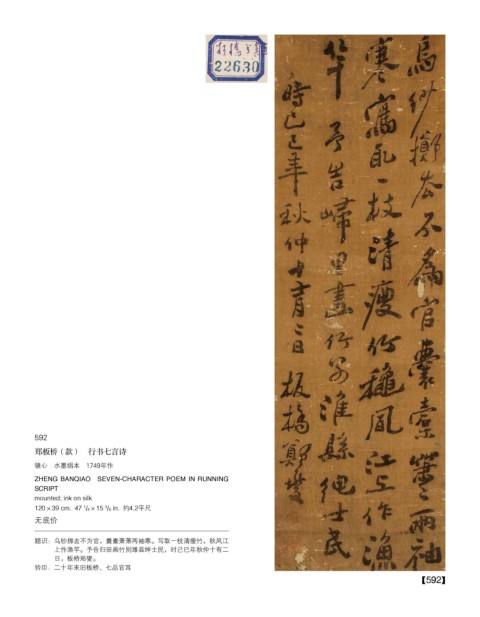 22630
烏紗擲去不為官囊橐蕭蕭兩袖
寒寫取一枝清瘦竹穐風江上作漁
竿 予告歸里畫竹別濰縣紳士民
時己巳年秋仲十有二日 板橋鄭燮
592
郑板桥（款） 行书七言诗
镜心 水墨绢本 1749年作
ZHENG BANQIAO SEVEN-CHARACTER POEM IN RUNNING
SCRIPT
mounted; ink on silk
120×39 cm. 47 1/4×15 3/8 in. 约4.2平尺
无底价
题识：乌纱掷去不为官，囊橐萧萧两袖寒。写取一枝清瘦竹，秋风江
上作渔竿。予告归田画竹别潍县绅士民，时己巳年秋仲十有二
日，板桥郑燮。
钤印：二十年来旧板桥、七品官耳
【592】